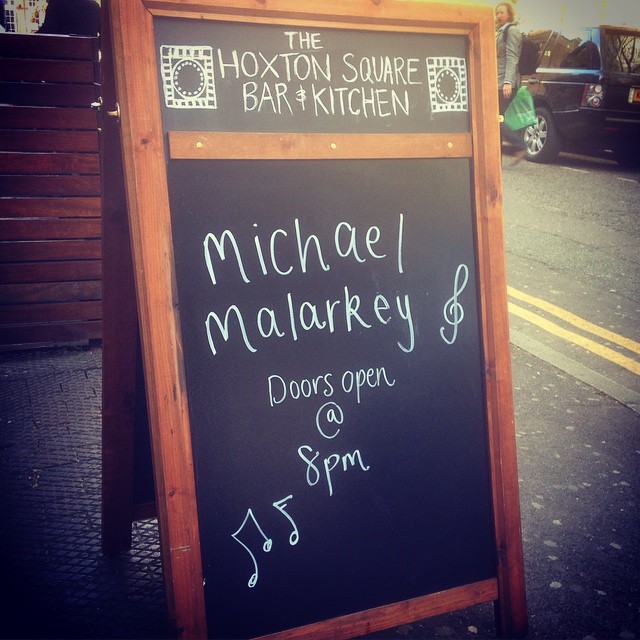 THE
HOXTON SQUARE
BAR & KITCHEN
Michael
Malarkey
Doors open
@
8pm